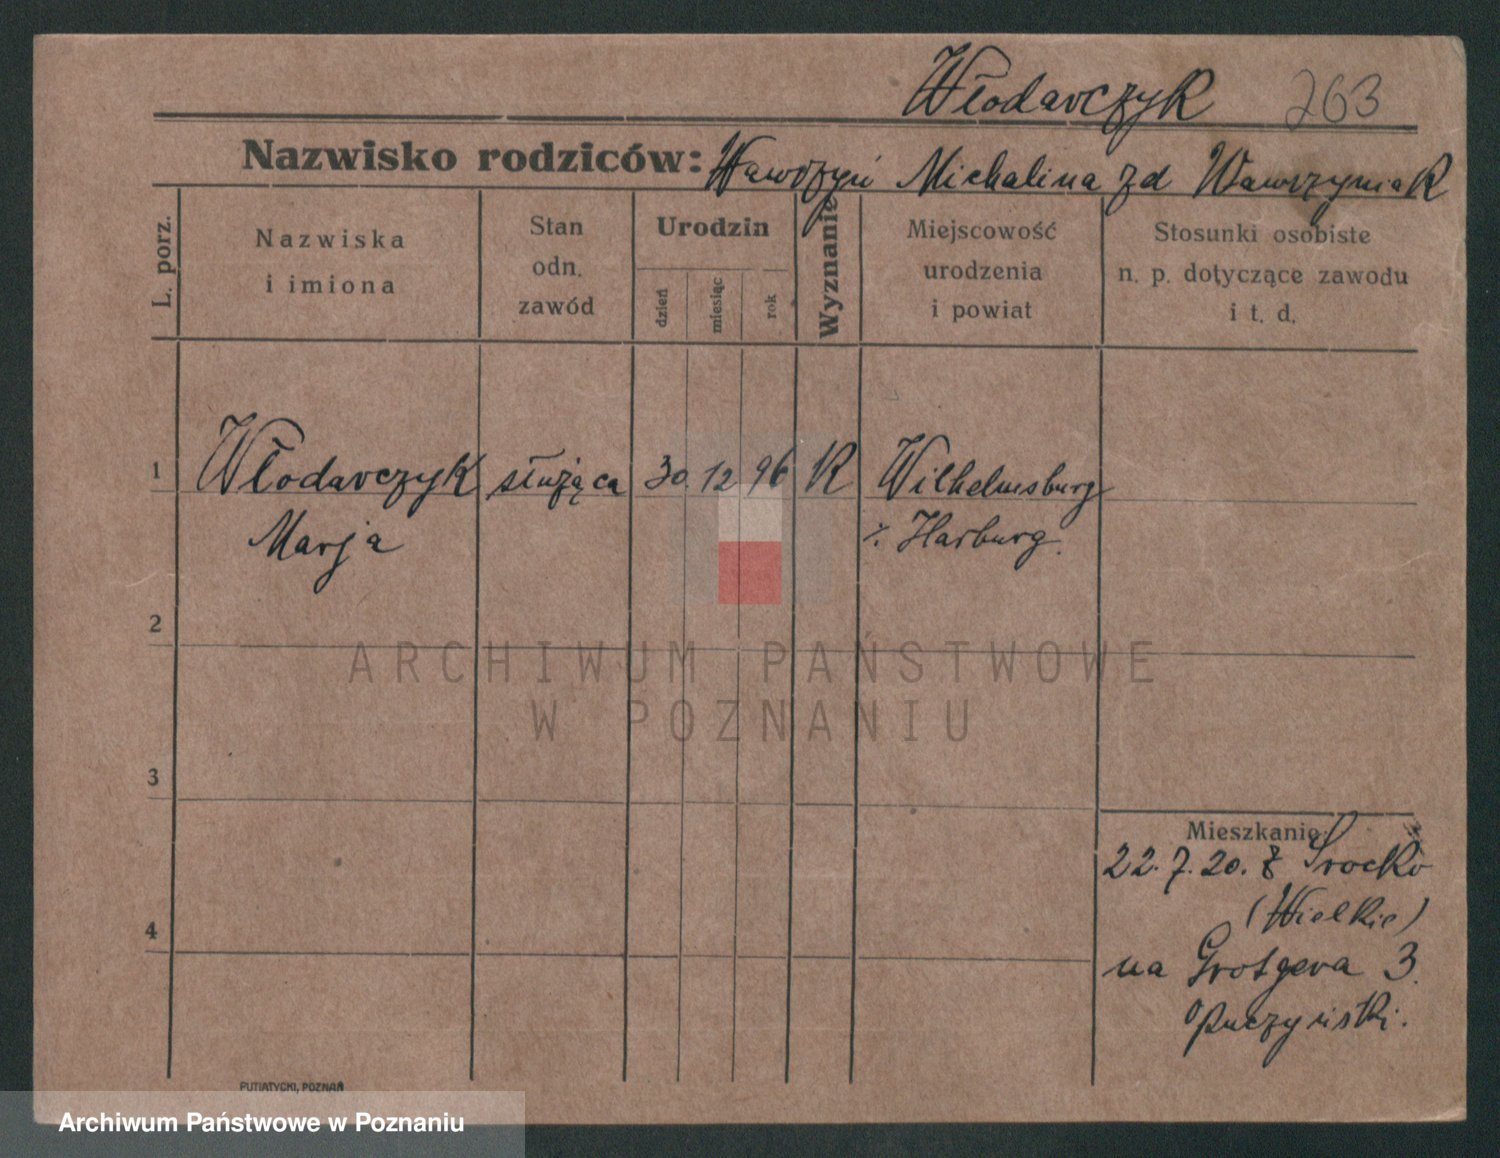 Włodarczyk 263
Nazwisko rodziców: Wawrzyn Michalina zd Wawrzyniak
L. porz.
Nazwiska
i imiona
Stan
odn.
zawód
Urodzin
dzień
miesiąc
rok
Wyznanie
Miejscowość
urodzenia
i powiat
Stosunki osobiste
n. p. dotyczące zawodu
i t. d.
1 Włodarczyk służąca 30. 12 96 K Wilhelmsburg
Marja ./. Harburg.
2
ARCHIWUM PAŃSTWOWE
W POZNANIU
3
Mieszkanie
22.7.20. z Srocko
(Wielkie)
4
na Grotgera 3.
Puczyński.
PUTIATYCKI, POZNAŃ
Archiwum Państwowe w Poznaniu